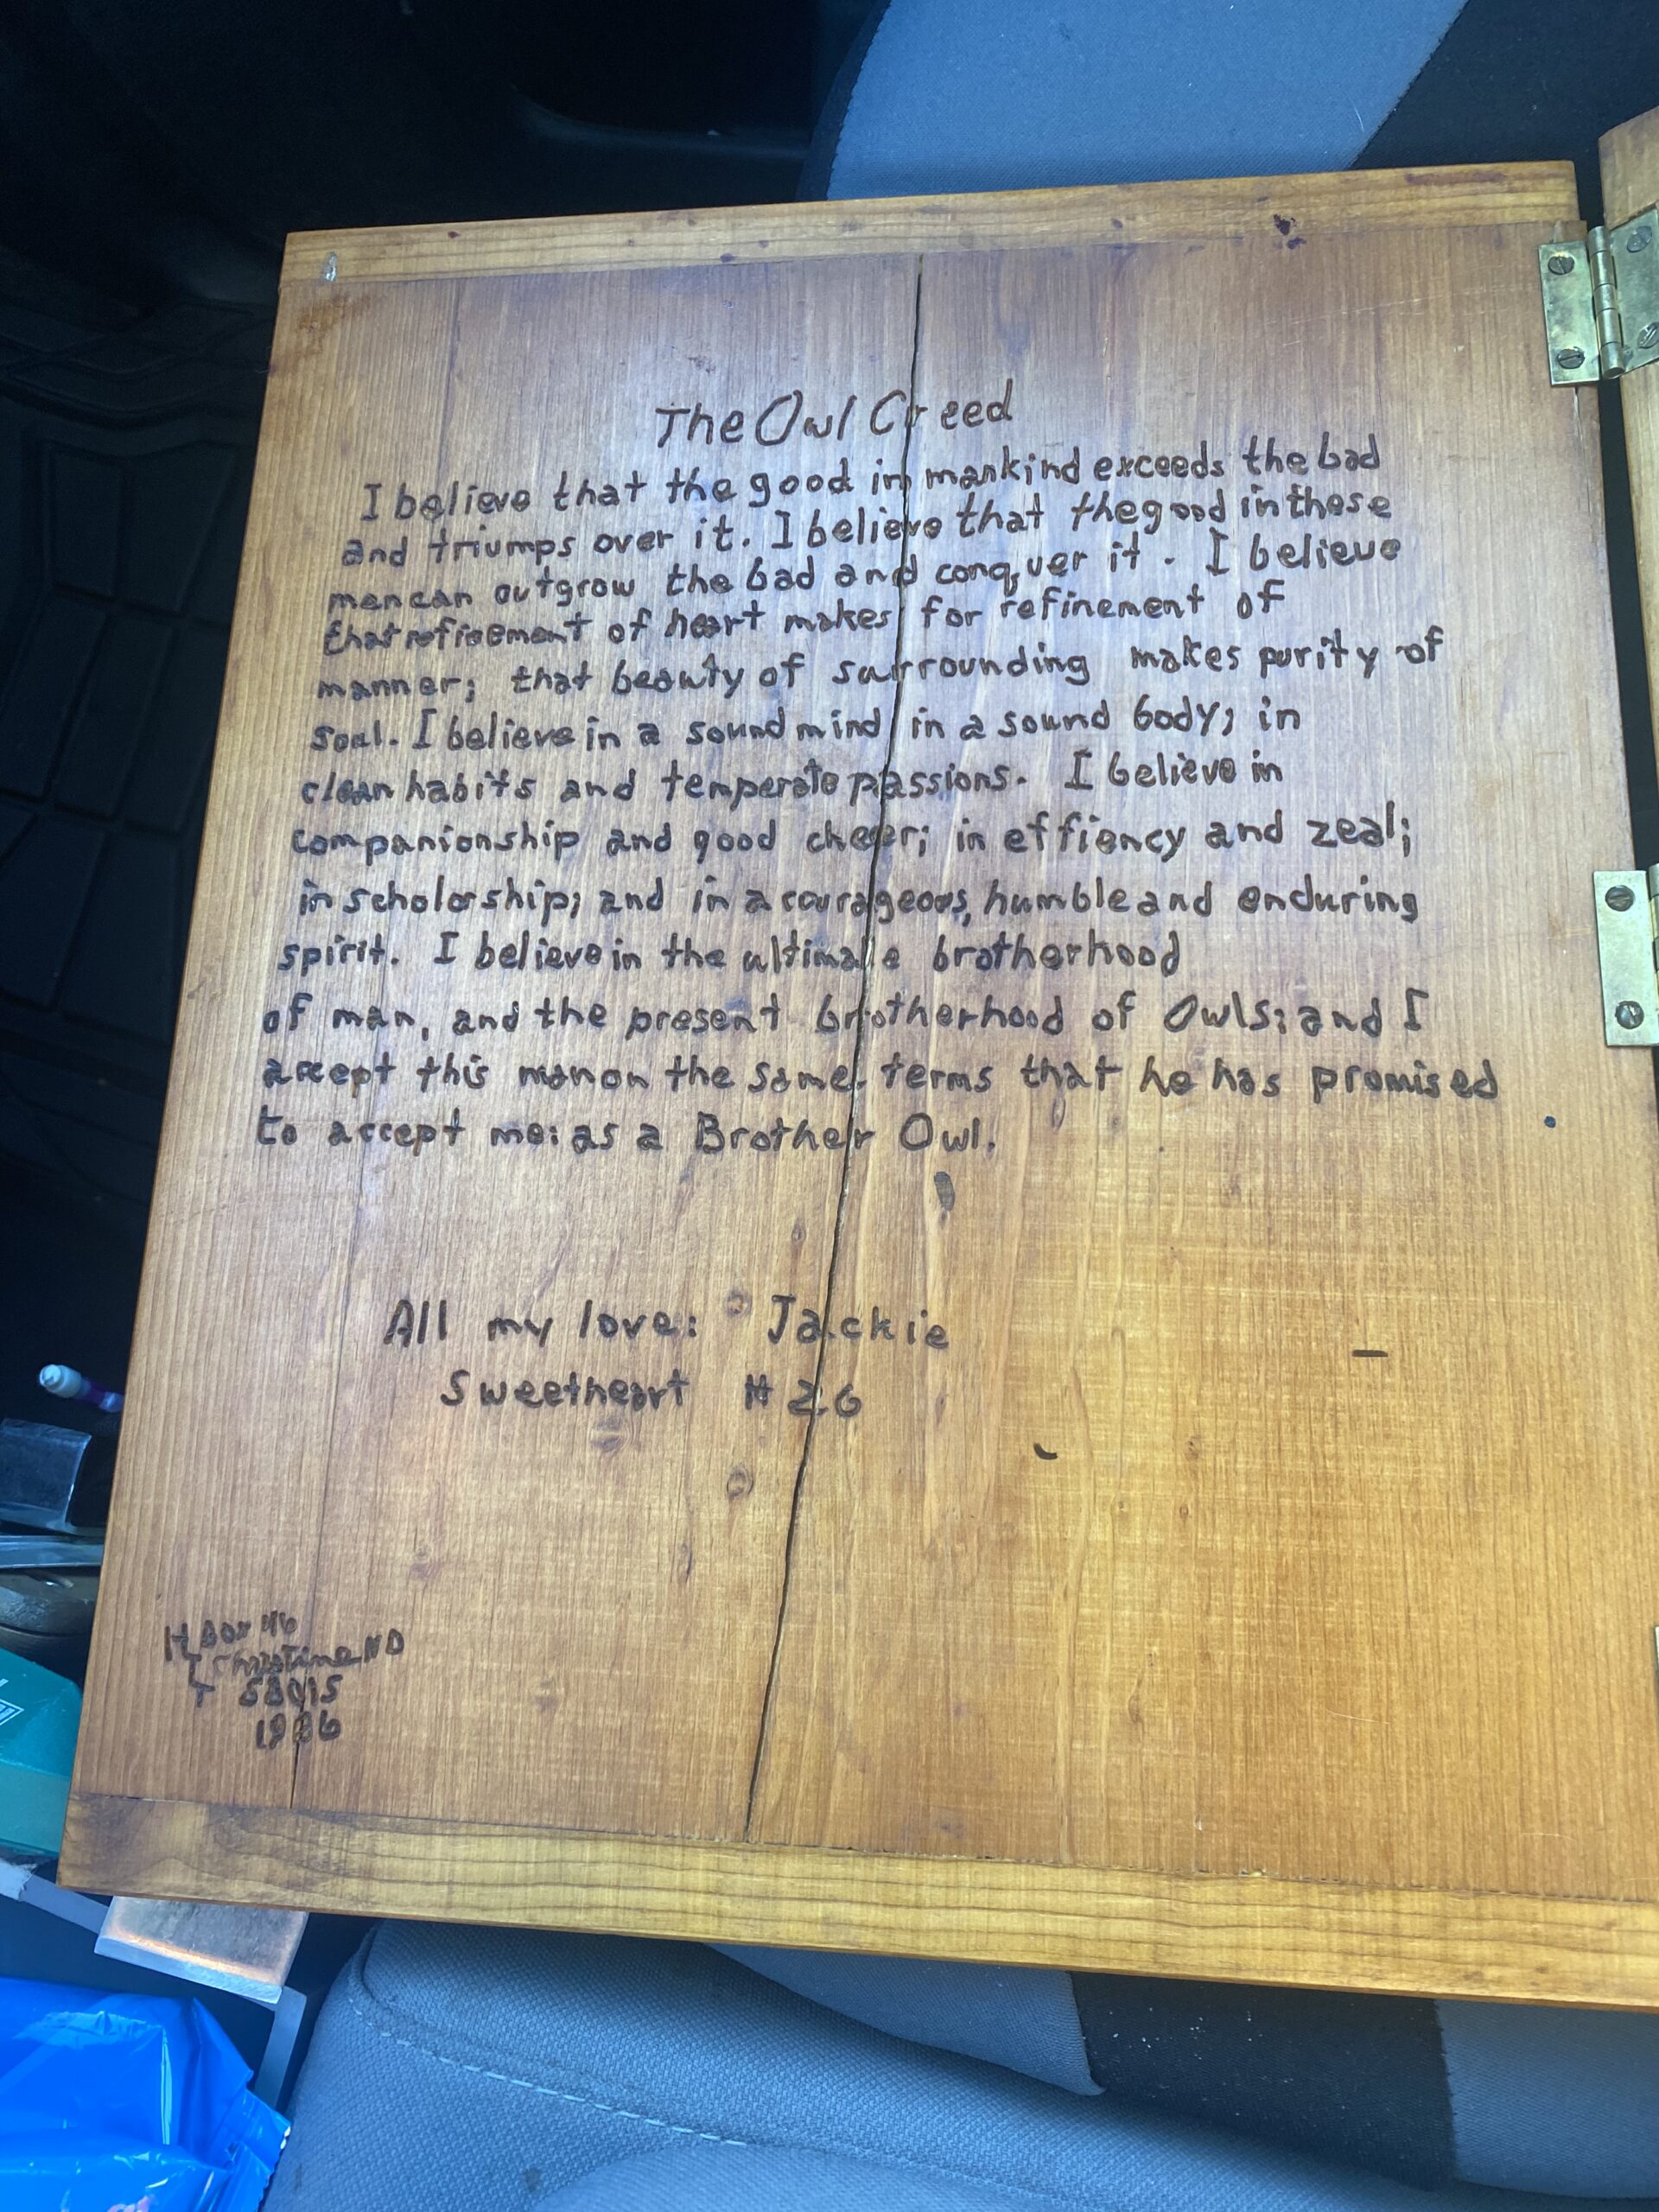 The Owl Creed
I believe that the good in mankind exceeds the bad
and triumps over it. I believe that the good in these
men can outgrow the bad and conquer it. I believe
that refinement of heart makes for refinement of
manner; that beauty of surrounding makes purity of
soul. I believe in a sound mind in a sound body; in
clean habits and temperate passions. I believe in
companionship and good cheer; in effiency and zeal;
in scholarship; and in a courageous, humble and enduring
spirit. I believe in the ultimate brotherhood
of man, and the present brotherhood of Owls; and I
accept this man on the same terms that he has promised
to accept me: as a Brother Owl.
All my love: Jackie
Sweetheart # 26
Box 46
Christine ND
58015
1986